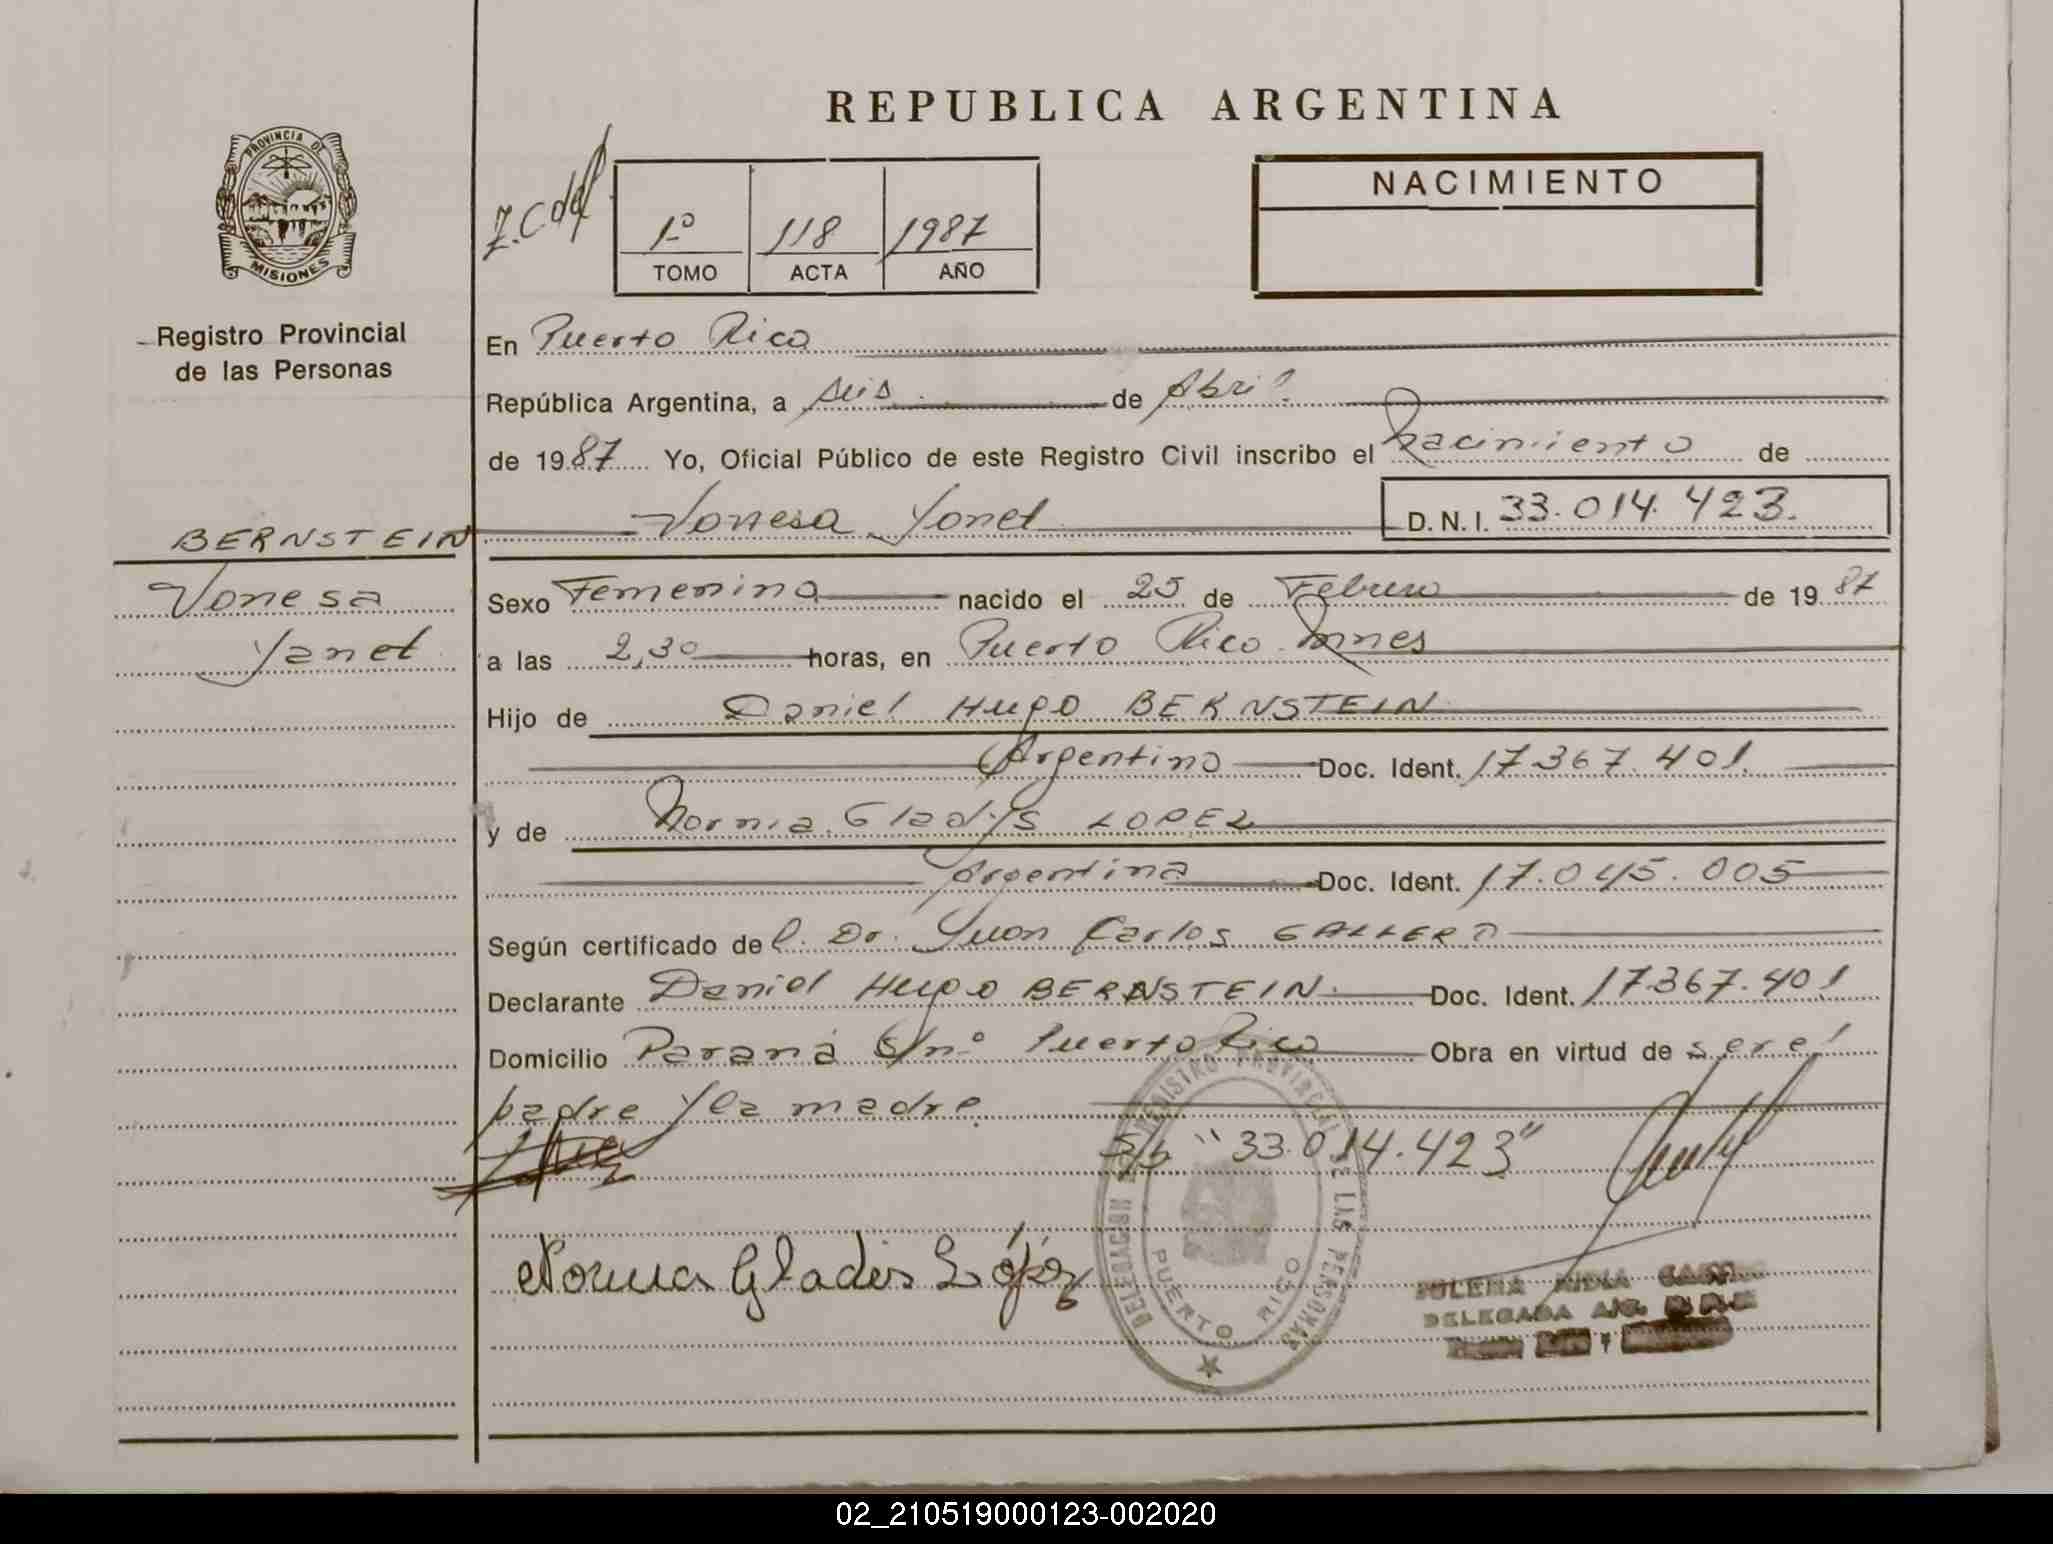 REPUBLICA ARGENTINA
PROVINCIA DE
MISIONES
Registro Provincial
de las Personas
1º 118 1987
TOMO ACTA AÑO
NACIMIENTO
En Puerto Rico
República Argentina, a seis de Abril
de 1987 Yo, Oficial Público de este Registro Civil inscribo el Nacimiento de
BERNSTEIN
Vanesa Yanet
D.N.I. 33.014.423.
Vanesa
Yanet
Sexo Femenino nacido el 25 de Febrero de 1987
a las 2,30 horas, en Puerto Rico Mnes
Hijo de Daniel Hugo BERNSTEIN
Argentino Doc. Ident. 17.367.401.
y de Norma Gladys LOPEZ
Argentina Doc. Ident. 17.045.005
Según certificado de l. Dr. Juan Carlos GALLERO
Declarante Daniel Hugo BERNSTEIN. Doc. Ident. 17.367.401
Domicilio Paraná S/nº Puerto Rico Obra en virtud de ser el
padre y la madre
S/b "33.014.423"
Norma Gladis López
DELEGACION REGISTRO PROVINCIAL DE LAS PERSONAS
PUERTO RICO
DELEGADA
02_210519000123-002020